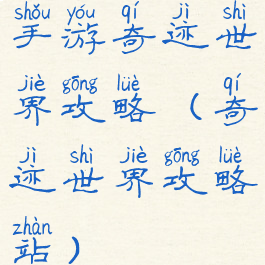 shǒu yóu qí jì shì
手游奇迹世
jiè gōng lüè qí
界攻略（奇
jì shì jiè gōng lüè
迹世界攻略
zhàn
站）